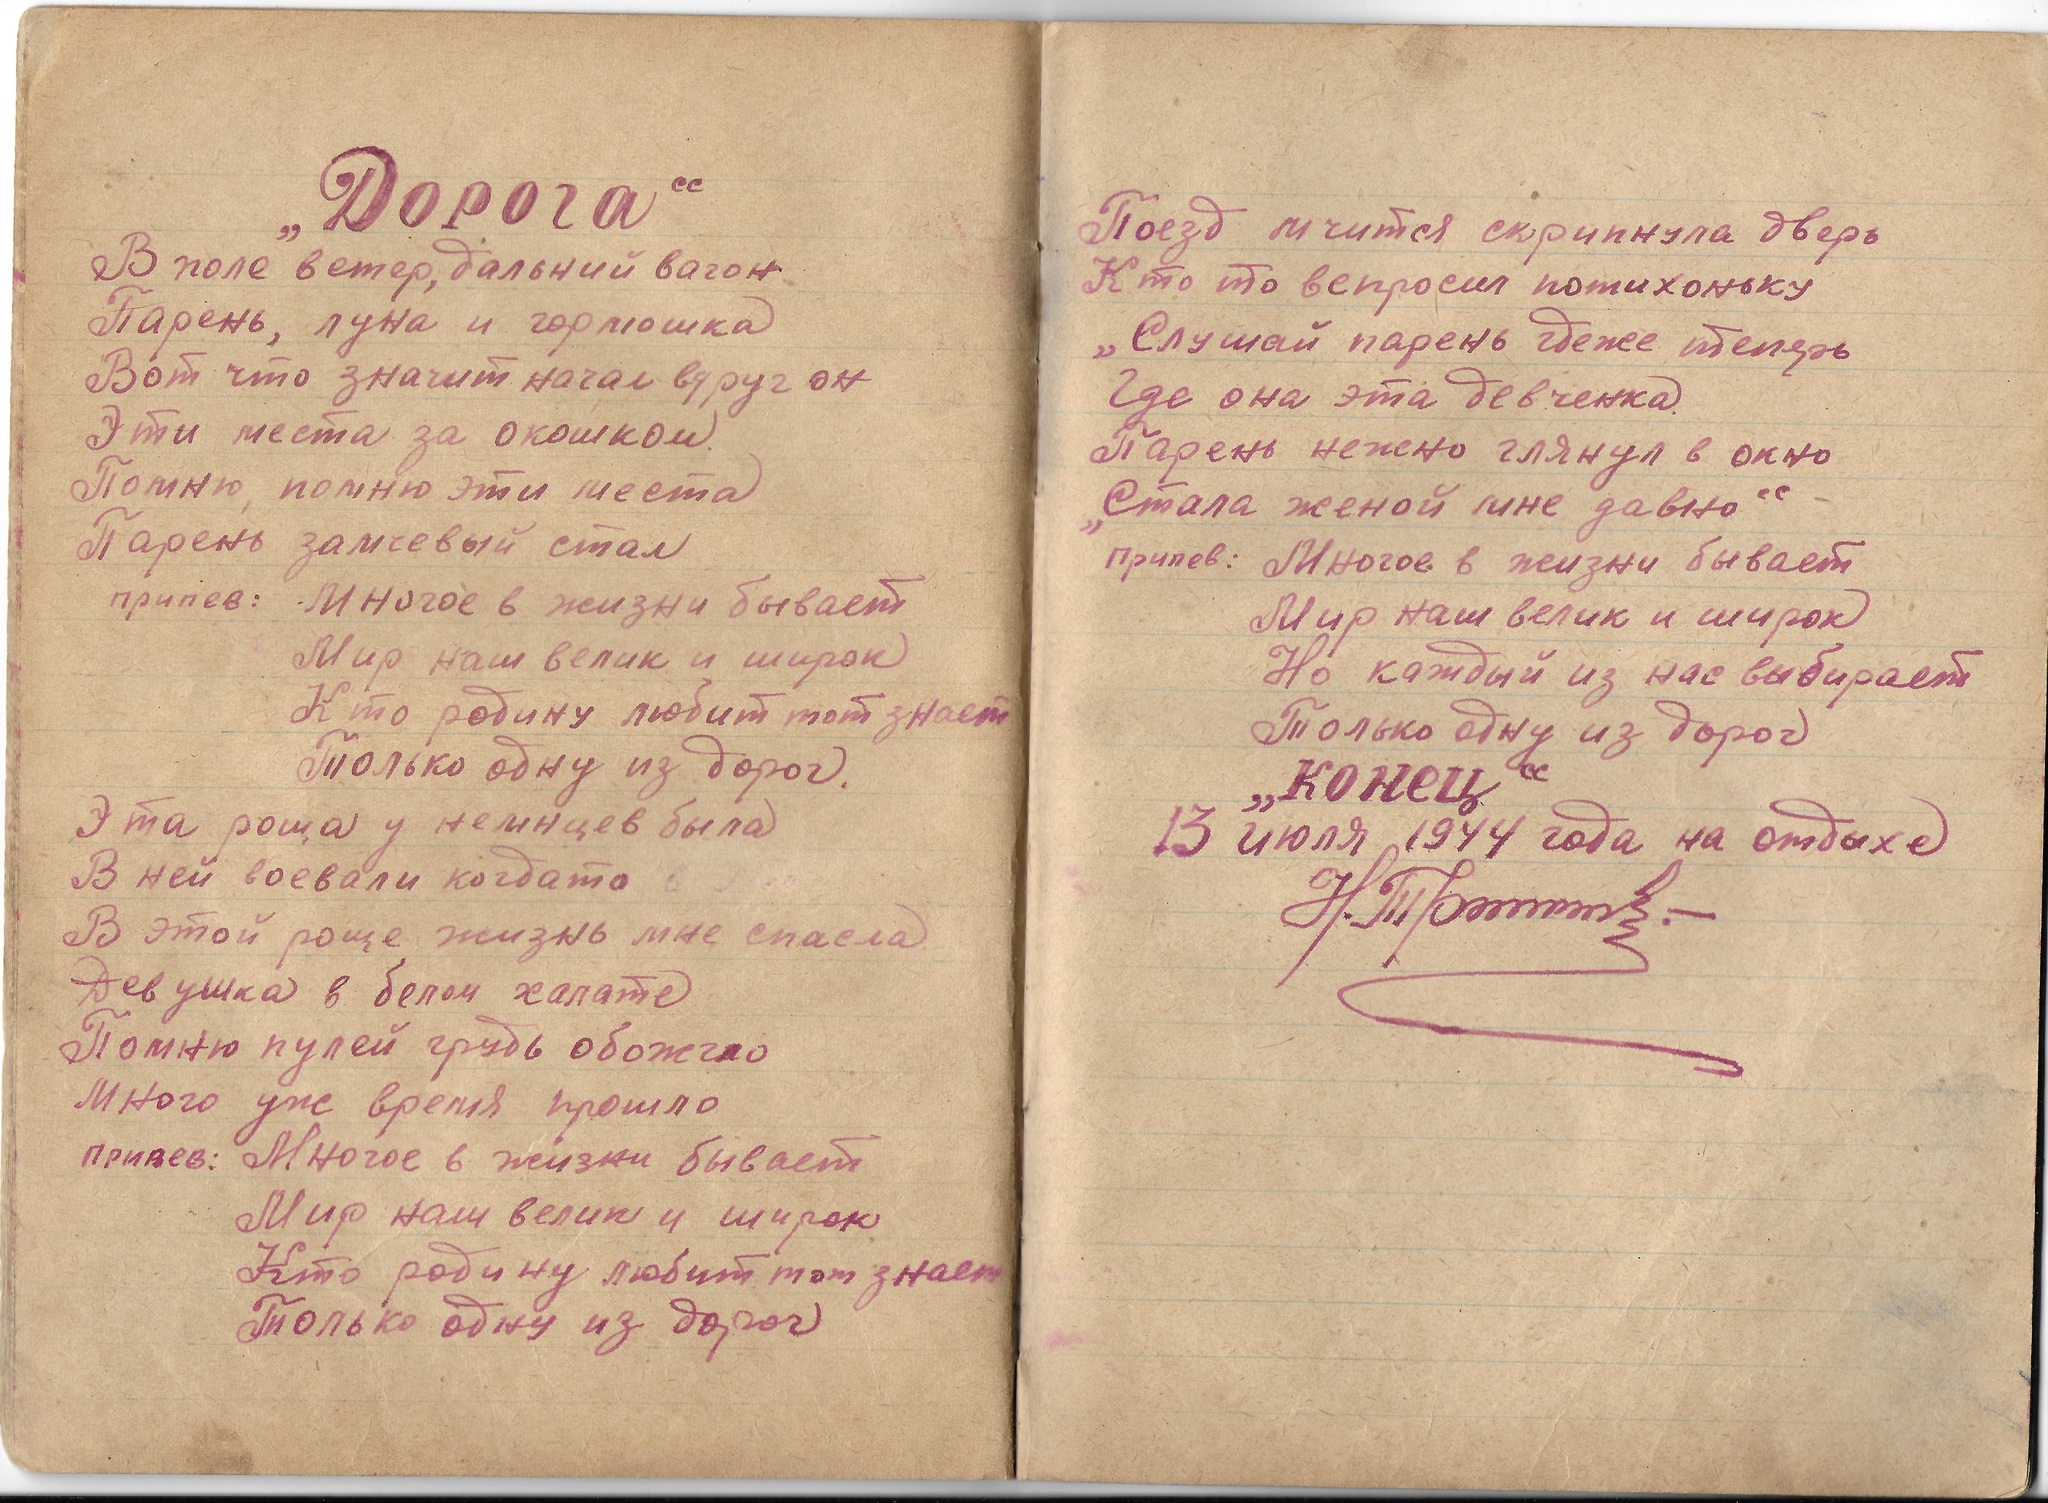 „Дорога“
В поле ветер, дальний вагон
Парень, луна и гормошка
Вот что значит начал вдруг он
Эти места за окошком.
Помню, помню эти места
Парень замчевый стал
припев: Многое в жизни бывает
Мир наш велик и широк
Кто родину любит тот знает
Только одну из дорог.
Эта роща у немнцев была
В ней воевали когдато
В этой роще жизнь мне спасла
Девушка в белом халате
Помню пулей грудь обожгло
Много уж время прошло
припев: Многое в жизни бывает
Мир наш велик и широк
Кто родину любит тот знает
Только одну из дорог
Поезд мчится скрипнула дверь
Кто то вспросил потихоньку
„Слушай парень гдеже теперь
Где она эта девченка.
Парень нежно глянул в окно
„Стала женой мне давно“
припев: Многое в жизни бывает
Мир наш велик и широк
Но каждый из нас выбирает
Только одну из дорог
„конец“
13 июля 1944 года на отдыхе